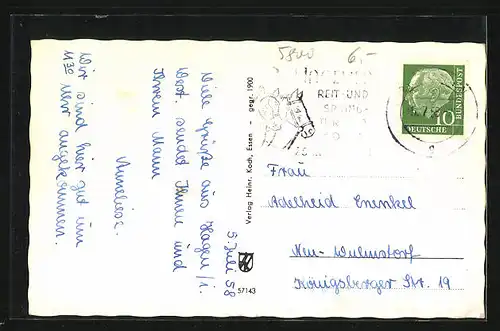 Wir sind hier gut um
11³⁰ Uhr angekommen.
Anneliese.
Viele Grüße aus Hagen/i.
West. sendet Ihnen und
Ihrem Mann
5 Juli 58
Verlag Heinr. Koch, Essen - gegr. 1900
57143
5800 6,-
REIT- UND
10
DEUTSCHE
BUNDESPOST
Frau
Adelheid Enenkel
Neu-Wulmstorf
Königsberger Str. 19